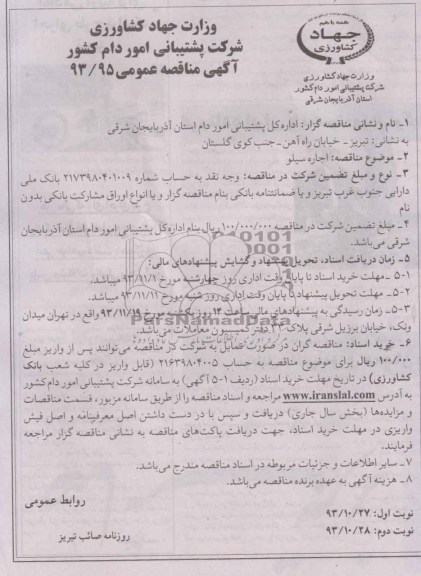 همه با هم
جهاد
کشاورزی
وزارت جهاد کشاورزی
شرکت پشتیبانی امور دام کشور
استان آذربایجان شرقی
وزارت جهاد کشاورزی
شرکت پشتیبانی امور دام کشور
آگهی مناقصه عمومی ۹۳/۹۵
۱- نام و نشانی مناقصه گزار: اداره کل پشتیبانی امور دام استان آذربایجان شرقی
به نشانی: تبریز - خیابان راه آهن - جنب کوی گلستان
۲- موضوع مناقصه: اجاره سیلو
۳- نوع و مبلغ تضمین شرکت در مناقصه: وجه نقد به حساب شماره ۲۱۷۳۹۸۰۴۰۱۰۰۹ بانک ملی
دارایی جنوب غرب تبریز و یا ضمانتنامه بانکی بنام مناقصه گزار و یا انواع اوراق مشارکت بانکی بدون
نام
۴- مبلغ تضمین شرکت در مناقصه ۱۰۰/۰۰۰/۰۰۰ ریال بنام اداره کل پشتیبانی امور دام استان آذربایجان
شرقی می‌باشد.
۵- زمان دریافت اسناد، تحویل پیشنهاد و گشایش پیشنهادهای مالی:
۵-۱ - مهلت خرید اسناد تا پایان وقت اداری روز چهارشنبه مورخ ۹۳/۱۱/۱ میباشد.
۵-۲- مهلت تحویل پیشنهاد تا پایان وقت اداری روز شنبه مورخ ۹۳/۱۱/۱۱ میباشد.
۵-۳- زمان رسیدگی به پیشنهادهای مالی ساعت ۱۴ روز یکشنبه مورخ ۹۳/۱۱/۱۹ واقع در تهران میدان
ونک، خیابان برزیل شرقی پلاک دفتر کمیسیون معاملات می‌باشد.
۶- خرید اسناد: مناقصه گران در صورت تمایل به شرکت در مناقصه می‌توانند پس از واریز مبلغ
۱۰۰/۰۰۰ ریال برای موضوع مناقصه به حساب ۲۱۶۳۹۸۰۴۰۰۵ (قابل واریز در کلیه شعب بانک
کشاورزی) در تاریخ مهلت خرید اسناد (ردیف ۱-۵ آگهی) به سامانه شرکت پشتیبانی امور دام کشور
به آدرس www.iranslal.com مراجعه و اسناد مناقصه را از طریق سامانه مزبور، قسمت مناقصات
و مزایده‌ها (بخش سال جاری) دریافت و سپس با در دست داشتن اصل معرفینامه و اصل فیش
واریزی در مهلت خرید اسناد، جهت دریافت پاکت‌های مناقصه به نشانی مناقصه گزار مراجعه
فرمایند.
۷- سایر اطلاعات و جزئیات مربوطه در اسناد مناقصه مندرج می‌باشد.
۸- هزینه آگهی به عهده برنده مناقصه می‌باشد.
روابط عمومی
نوبت اول: ۹۳/۱۰/۲۷
نوبت دوم: ۹۳/۱۰/۲۸
روزنامه صائب تبریز
ParsNamadData